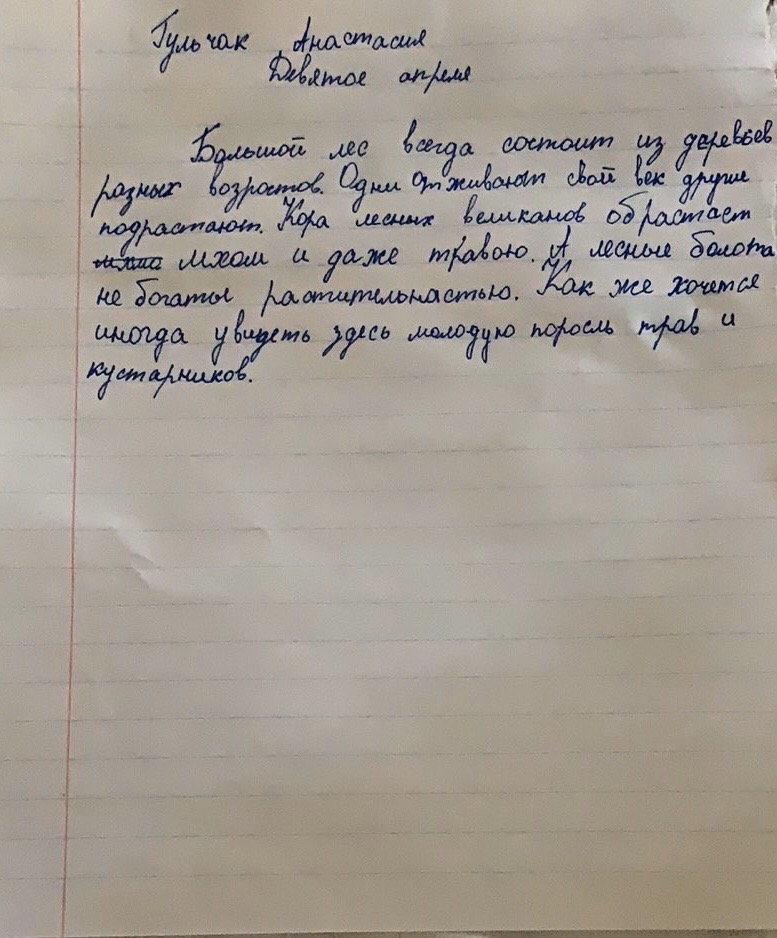 Гульчак Анастасия
Девятое апреля
Большой лес всегда состоит из деревьев
разных возрастов. Одни отживают свой век другие
подрастают. Кора лесных великанов обрастает
мхом и даже травою. А лесные болота
не богаты растительностью. Как же хочется
иногда увидеть здесь молодую поросль трав и
кустарников.